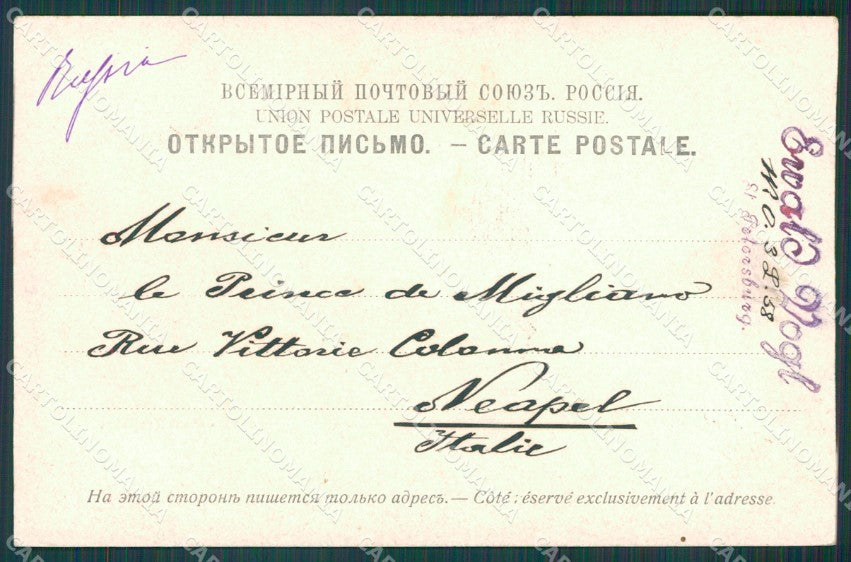 Russia
ВСЕМІРНЫЙ ПОЧТОВЫЙ СОЮЗЪ. РОССІЯ.
UNION POSTALE UNIVERSELLE RUSSIE.
ОТКРЫТОЕ ПИСЬМО. — CARTE POSTALE.
Monsieur
le Prince de Migliano
Rue Vittorie Colonna
Neapel
Italie
Ewald Vogl
W. O. 3 L. 58
St. Petersburg.
На этой сторонѣ пишется только адресъ. — Côté réservé exclusivement à l'adresse.
CARTOLINOMANIA